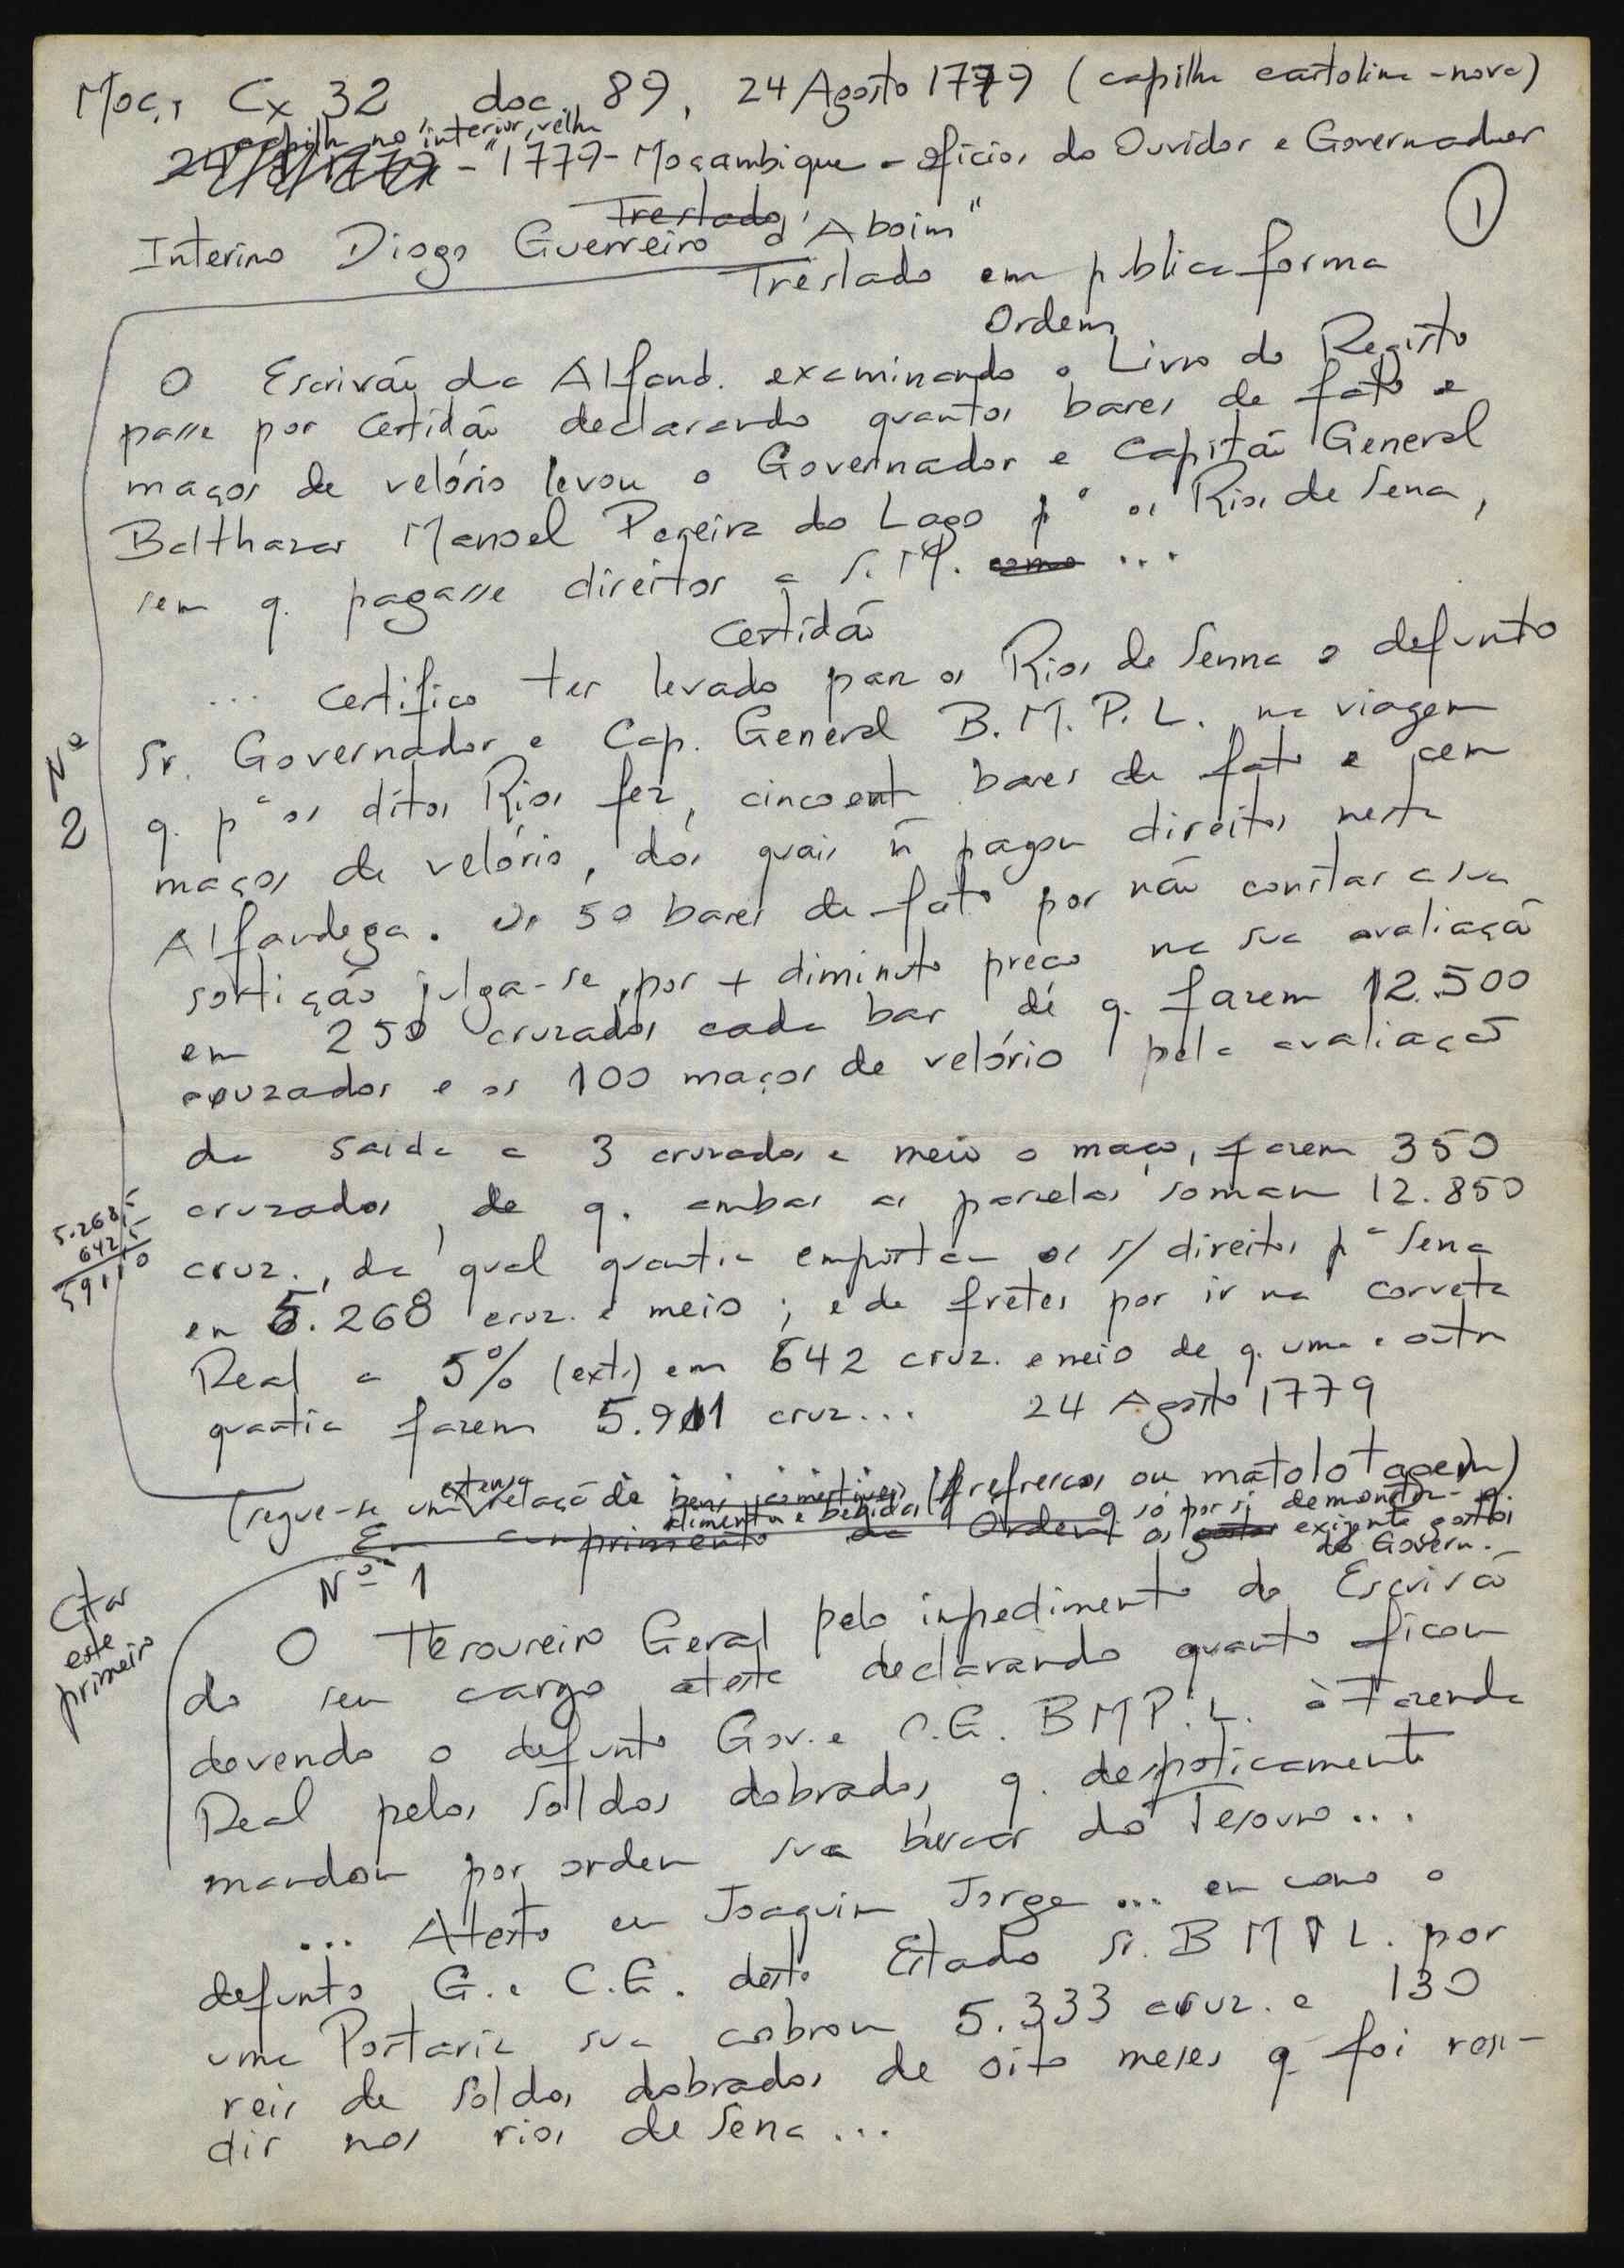 Moç, Cx 32 doc. 89, 24 Agosto 1779 (capilha cartolina - nova)
capilha no interior, velha
- "1779 - Moçambique - Ofícios do Ouvidor e Governador
Trestado
Interino Diogo Guerreiro d'Aboim"
1
Trestado em publica forma
Ordem
O Escrivão da Alfand. examinando o Livro do Registo
passe por Certidão declarando quantos bares de fato e
maços de velório levou o Governador e Capitão General
Balthazar Manoel Pereira do Lago pª os Rios de Sena,
sem q. pagasse direitos a S. M. como ...
Certidão
... Certifico ter levado para os Rios de Senna o defunto
Sr. Governador e Cap. General B. M. P. L. na viagem
q. pª os ditos Rios fez, cincoenta bares de fato e cem
maços de velório, dos quais ñ pagou direitos nesta
Alfandega. Os 50 bares de fato por não constar a sua
sortição julga-se, por + diminuto preço na sua avaliação
em 250 cruzados cada bar de q. fazem 12.500
cruzados e os 100 maços de velório pela avaliação
da saída a 3 cruzados e meio o maço, fazem 350
cruzados, de q. ambas as parcelas somam 12.850
cruz., da qual quantia emportam os s/ direitos pª Sena
em 5.268 cruz. e meio; e de fretes por ir na corveta
Real a 5% (ext.) em 642 cruz. e meio de q. uma e outra
quantia fazem 5.911 cruz... 24 Agosto 1779
Nº
2
5.268,5
642,5
5911,0
(segue-se uma extensa relação de bens comestíveis (refrescos ou matolotagem)
alimentos e bebidas q só por si demonstra
os gastos exigente gastos
do Govern.
Em cumprimento da Ordem
Nº 1
Citar
este
primeiro
O Tesoureiro Geral pelo impedimento do Escrivão
do seu cargo ateste declarando quanto ficou
devendo o defunto Gov. e C.G. B M P. L. à Fazenda
Real pelos soldos dobrados q. despoticamente
mandou por ordem sua buscar do Tesouro...
... Atesto eu Joaquim Jorge ... em como o
defunto G. e C.G. deste Estado Sr. B M P L. por
uma Portaria sua cobrou 5.333 cruz. e 130
reis de soldos dobrados de oito meses q foi resi-
dir nos rios de Sena ...